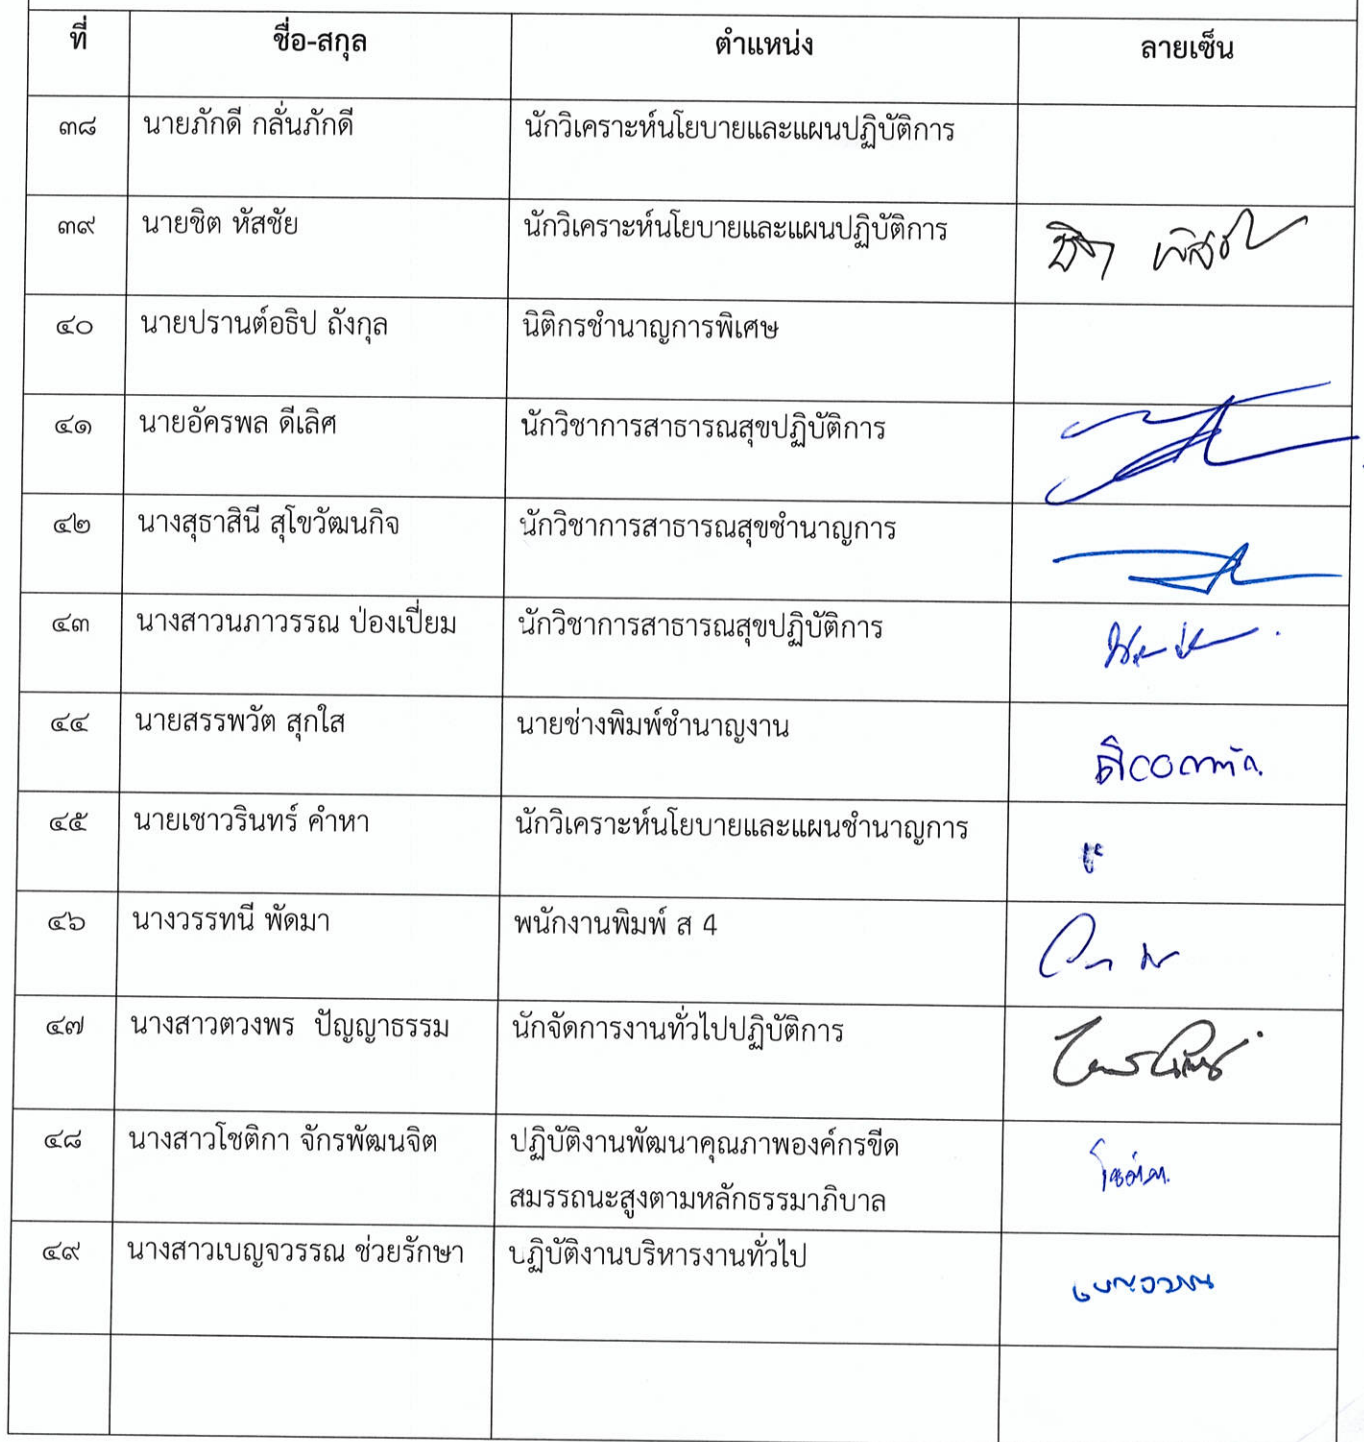 ที่ ชื่อ-สกุล ตำแหน่ง ลายเซ็น
๓๘ นายภักดี กลั่นภักดี นักวิเคราะห์นโยบายและแผนปฏิบัติการ
๓๙ นายชิต หัสชัย นักวิเคราะห์นโยบายและแผนปฏิบัติการ
๔๐ นายปรานต์อธิป ถังกุล นิติกรชำนาญการพิเศษ
๔๑ นายอัครพล ดีเลิศ นักวิชาการสาธารณสุขปฏิบัติการ
๔๒ นางสุธาสินี สุโขวัฒนกิจ นักวิชาการสาธารณสุขชำนาญการ
๔๓ นางสาวนภาวรรณ ป่องเปี่ยม นักวิชาการสาธารณสุขปฏิบัติการ
๔๔ นายสรรพวัต สุกใส นายช่างพิมพ์ชำนาญงาน
๔๕ นายเชาวรินทร์ คำหา นักวิเคราะห์นโยบายและแผนชำนาญการ
๔๖ นางวรรทนี พัดมา พนักงานพิมพ์ ส 4
๔๗ นางสาวตวงพร ปัญญาธรรม นักจัดการงานทั่วไปปฏิบัติการ
๔๘ นางสาวโชติกา จักรพัฒนจิต ปฏิบัติงานพัฒนาคุณภาพองค์กรขีด
สมรรถนะสูงตามหลักธรรมาภิบาล
๔๙ นางสาวเบญจวรรณ ช่วยรักษา ปฏิบัติงานบริหารงานทั่วไป
เบญจวรรณ